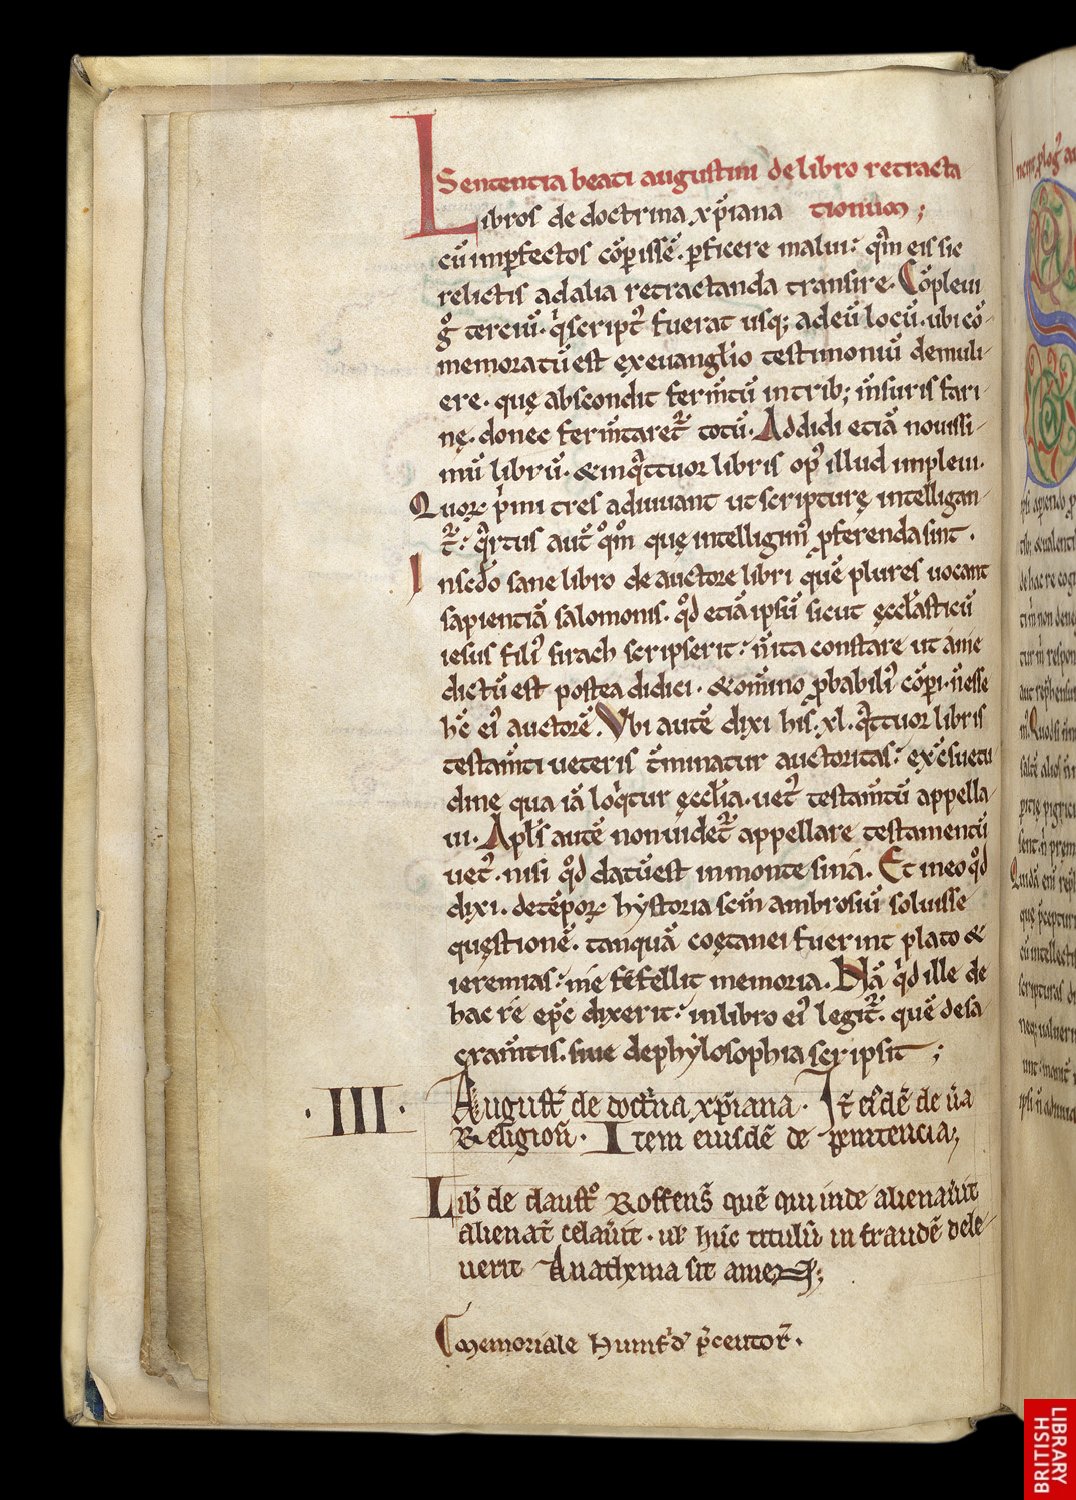 Sententia beati augustini de libro retracta
Libros de doctrina xp̄iana tionum ;
cū imꝑfectos cōperissē. ꝑficere malui: qm̄ eis sic
relictis ad alia retractanda transire. Cōpleui
gͦ terciū. qͥ script᷒ fuerat usq; ad eū locū. ubi cō-
memoratū est ex euangl̄io testimoniū de muli-
ere. quę absconditferm̄tū in trib; m̄suris fari-
nę. donec ferm̄taret᷑ totū. Addidi etiā nouissi-
mū librū. & in qͣttuor libris op᷒ illud impleui.
Quoꝝ pͥmi tres adiuuant ut scripturę intelligan-
t᷑: qͣrtus aut̄ qͦm̄ quę intelligim᷒ ꝓferenda sint.
In sc̄do sane libro de auctore libri quē plures uocant
sapientiā salomonis. qͦd etiā ipsū sicut ęccl̄asticū
iesus fili᷒ sirach scripserit: n̄ ita constare ut a me
dictū est postea didici. & om̄ino ꝓbabili᷒ cōperi. n̄ esse
hc̄ ei᷒ auctorē. Vbi autē dixi his. xl. qͣttuor libris
testam̄ti ueteris t̄minatur auctoritas: ex cōsuetu
dine qua iā loqͥtur ęccl̄ia. uet᷒ testam̄tū appella-
ui. Apl̄s autē non uidet᷑ appellare testamentū
uet᷒. nisi qͦd datū est in monte sina. Et in eo qͦd
dixi. de tēpoꝝ hystoria sc̄m ambrosiū soluisse
quęstionē. tanquā coętanei fuerint plato &
ieremias: me fefellit memoria. Nā qͥd ille de
hac re ep̄c dixerit: in libro ei᷒ legit᷑. quē de sa
cram̄tis. siue de phylosophia scripsit ;
.III. August᷒ de doct̄na xp̄iana. It̄ ei᷒dē de ūa
Religion̄. Item eiusdē de penitencia;
Lib̄ de claustͦ Roffens̄ quē qui inde alienau̾it
alienat̄ celau̾it. ul̾ hūc titulū in fraudē dele-
uerit Anathema sit amen;
Memoriale Humf̾di p̄centor᷒.
BRITISH
LIBRARY